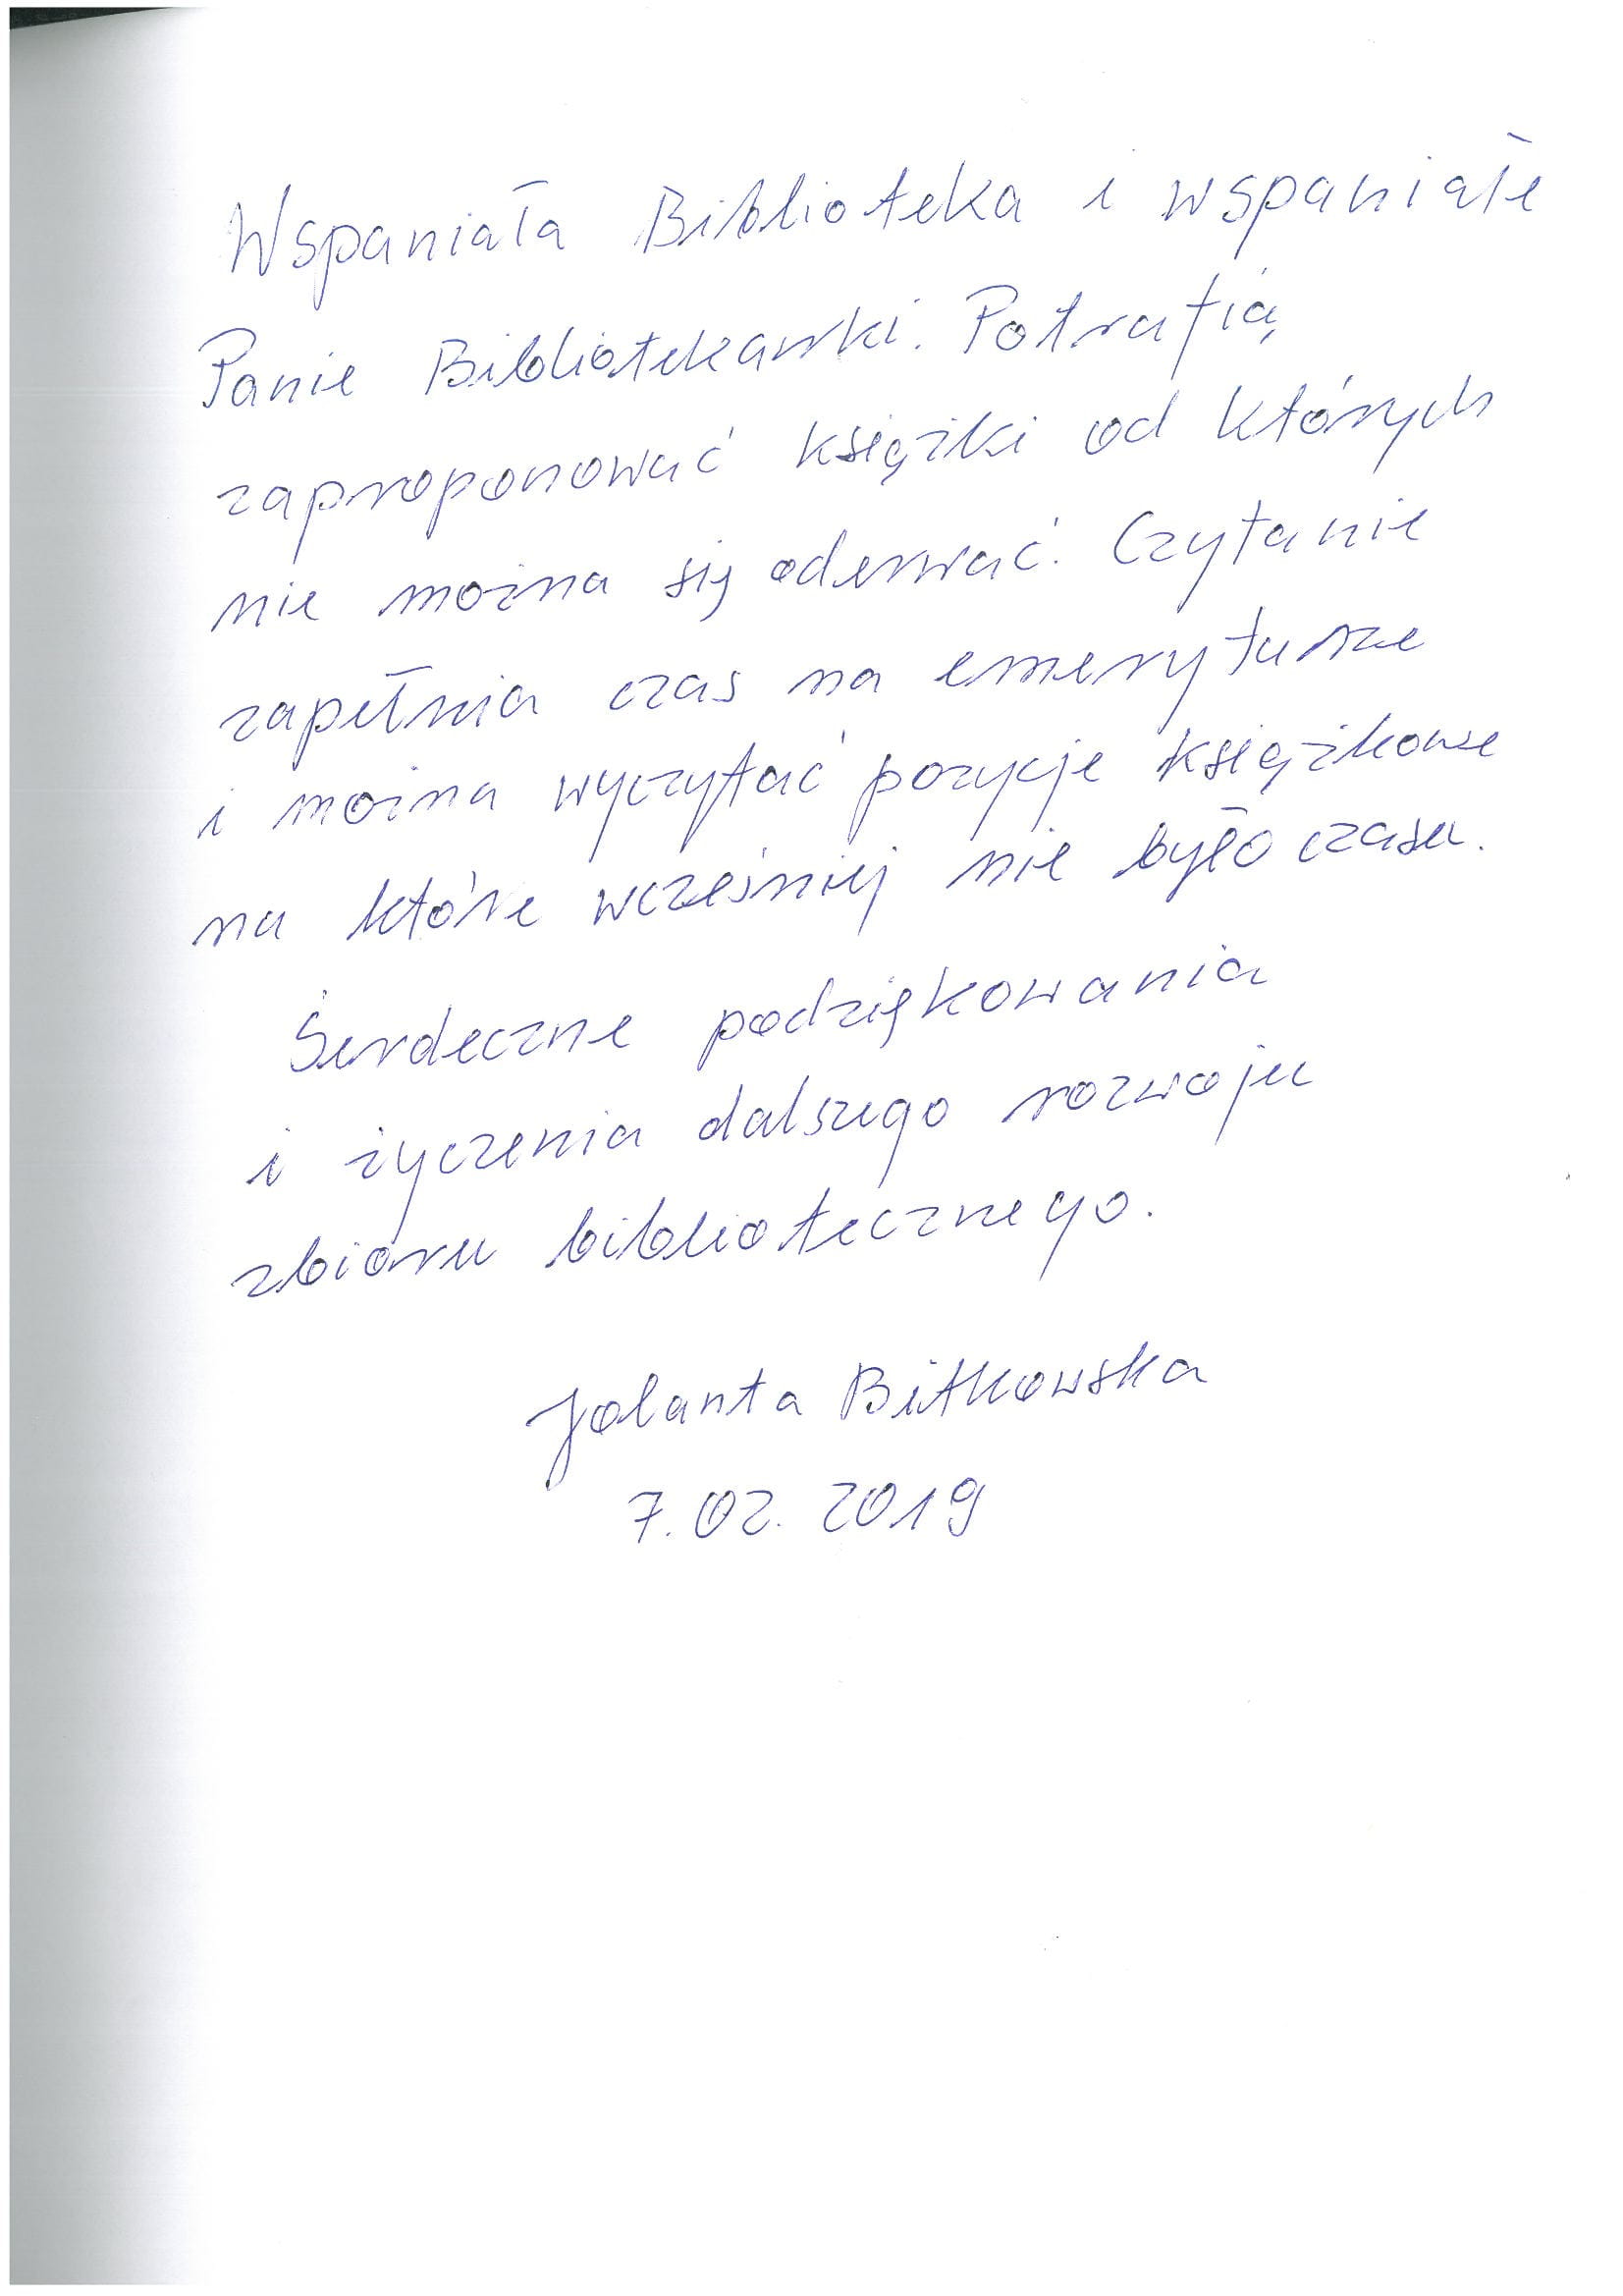 Wspaniała Biblioteka i wspaniałe
Panie Bibliotekarki. Potrafią
zaproponować książki od których
nie można się oderwać. Czytanie
zapełnia czas na emeryturze
i można wyczytać pozycje książkowe
na które wcześniej nie było czasu.
Serdeczne podziękowania
i życzenia dalszego rozwoju
zbioru bibliotecznego.
Jolanta Bitkowska
7.02.2019